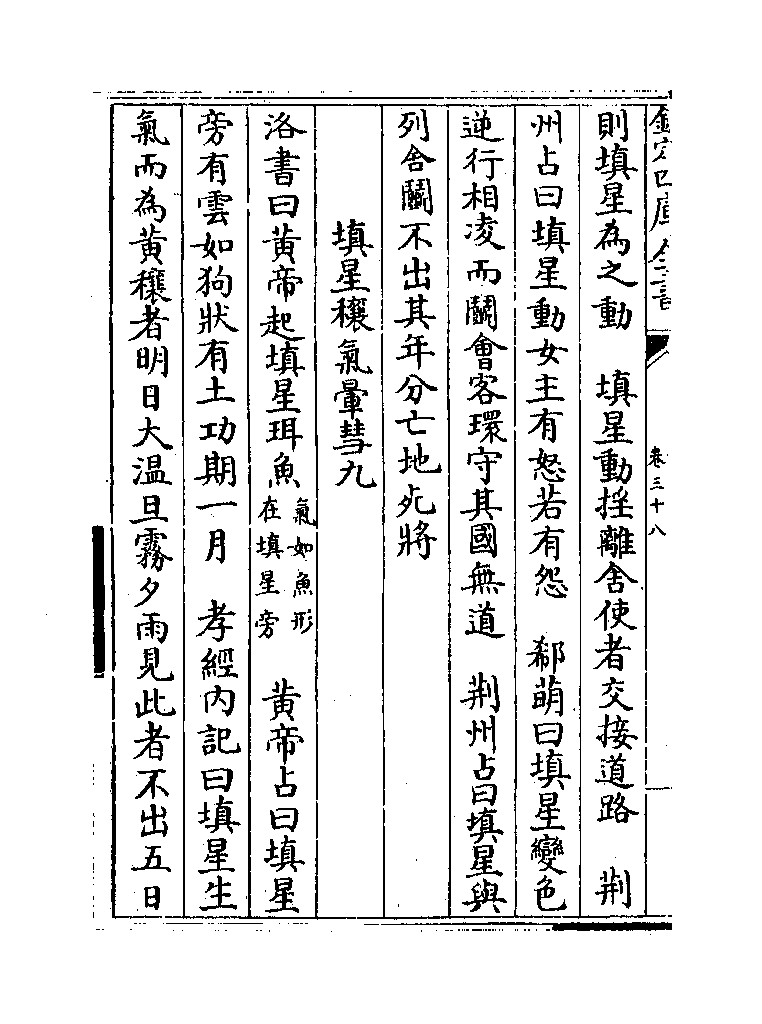 欽定四庫全書
卷三十八
則填星為之動　填星動揺離舍使者交接道路　荆
州占曰填星動女主有怒若有怨　郗萌曰填星變色
逆行相凌而鬭會客環守其國無道　荆州占曰填星與
列舍鬭不出其年分亡地死將
填星穰氣暈彗九
洛書曰黄帝起填星珥魚氣如魚形在填星旁　黄帝占曰填星
旁有雲如狗狀有土功期一月　孝經内記曰填星生
氣而為黄穰者明日大温旦霧夕雨見此者不出五日